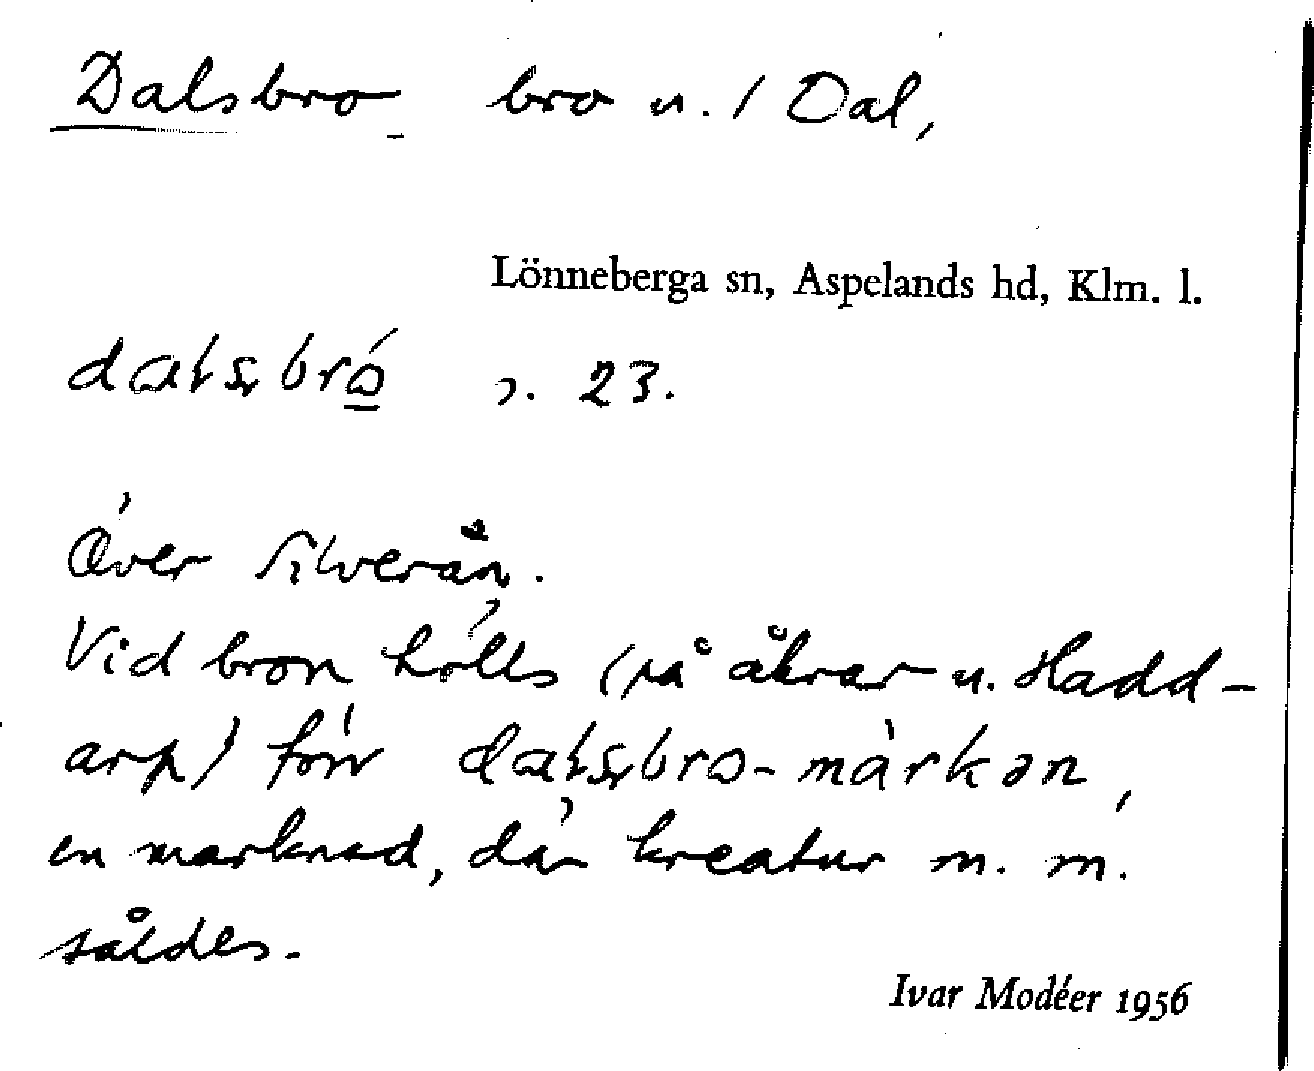 Dalsbro bro u. / Dal,
Lönneberga sn, Aspelands hd, Klm. l.
dalsbró s. 23.
Över Silverån.
Vid bron hölls (på åkrar u. Hadd-
arp) förr dalsbro-màrkən,
en marknad, där kreatur m. m.
såldes.
Ivar Modéer 1956